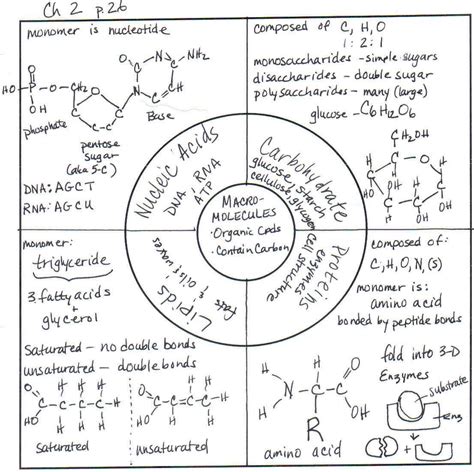 Ch 2 p.26
monomer is nucleotide
phosphate
pentose
sugar
(aka 5-C)
Base
DNA: AGCT
RNA: AGCU
composed of C, H, O
1:2:1
monosaccharides - simple sugars
disaccharides - double sugar
polysaccharides - many (large)
glucose - C6H12O6
Nucleic Acids
DNA, RNA
ATP
Carbohydrate
glucose, starch
cellulose, glycogen
MACRO-
MOLECULES
• Organic Cpds
• Contain Carbon
Lipids
fats, oils & waxes
Proteins
enzymes
cell structure
monomer:
triglyceride
3 fatty acids
+
glycerol
Saturated - no double bonds
unsaturated - double bonds
saturated
unsaturated
composed of:
C, H, O, N, (S)
monomer is:
amino acid
bonded by peptide bonds
fold into 3-D
Enzymes
substrate
Enz
amino acid